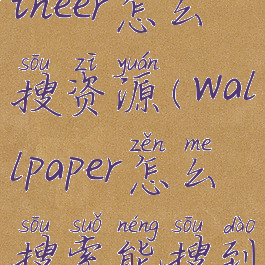 ineer怎么
sōu zī yuán
搜资源(wal
zěn me
lpaper怎么
sōu suǒ néng sōu dào
搜索能搜到